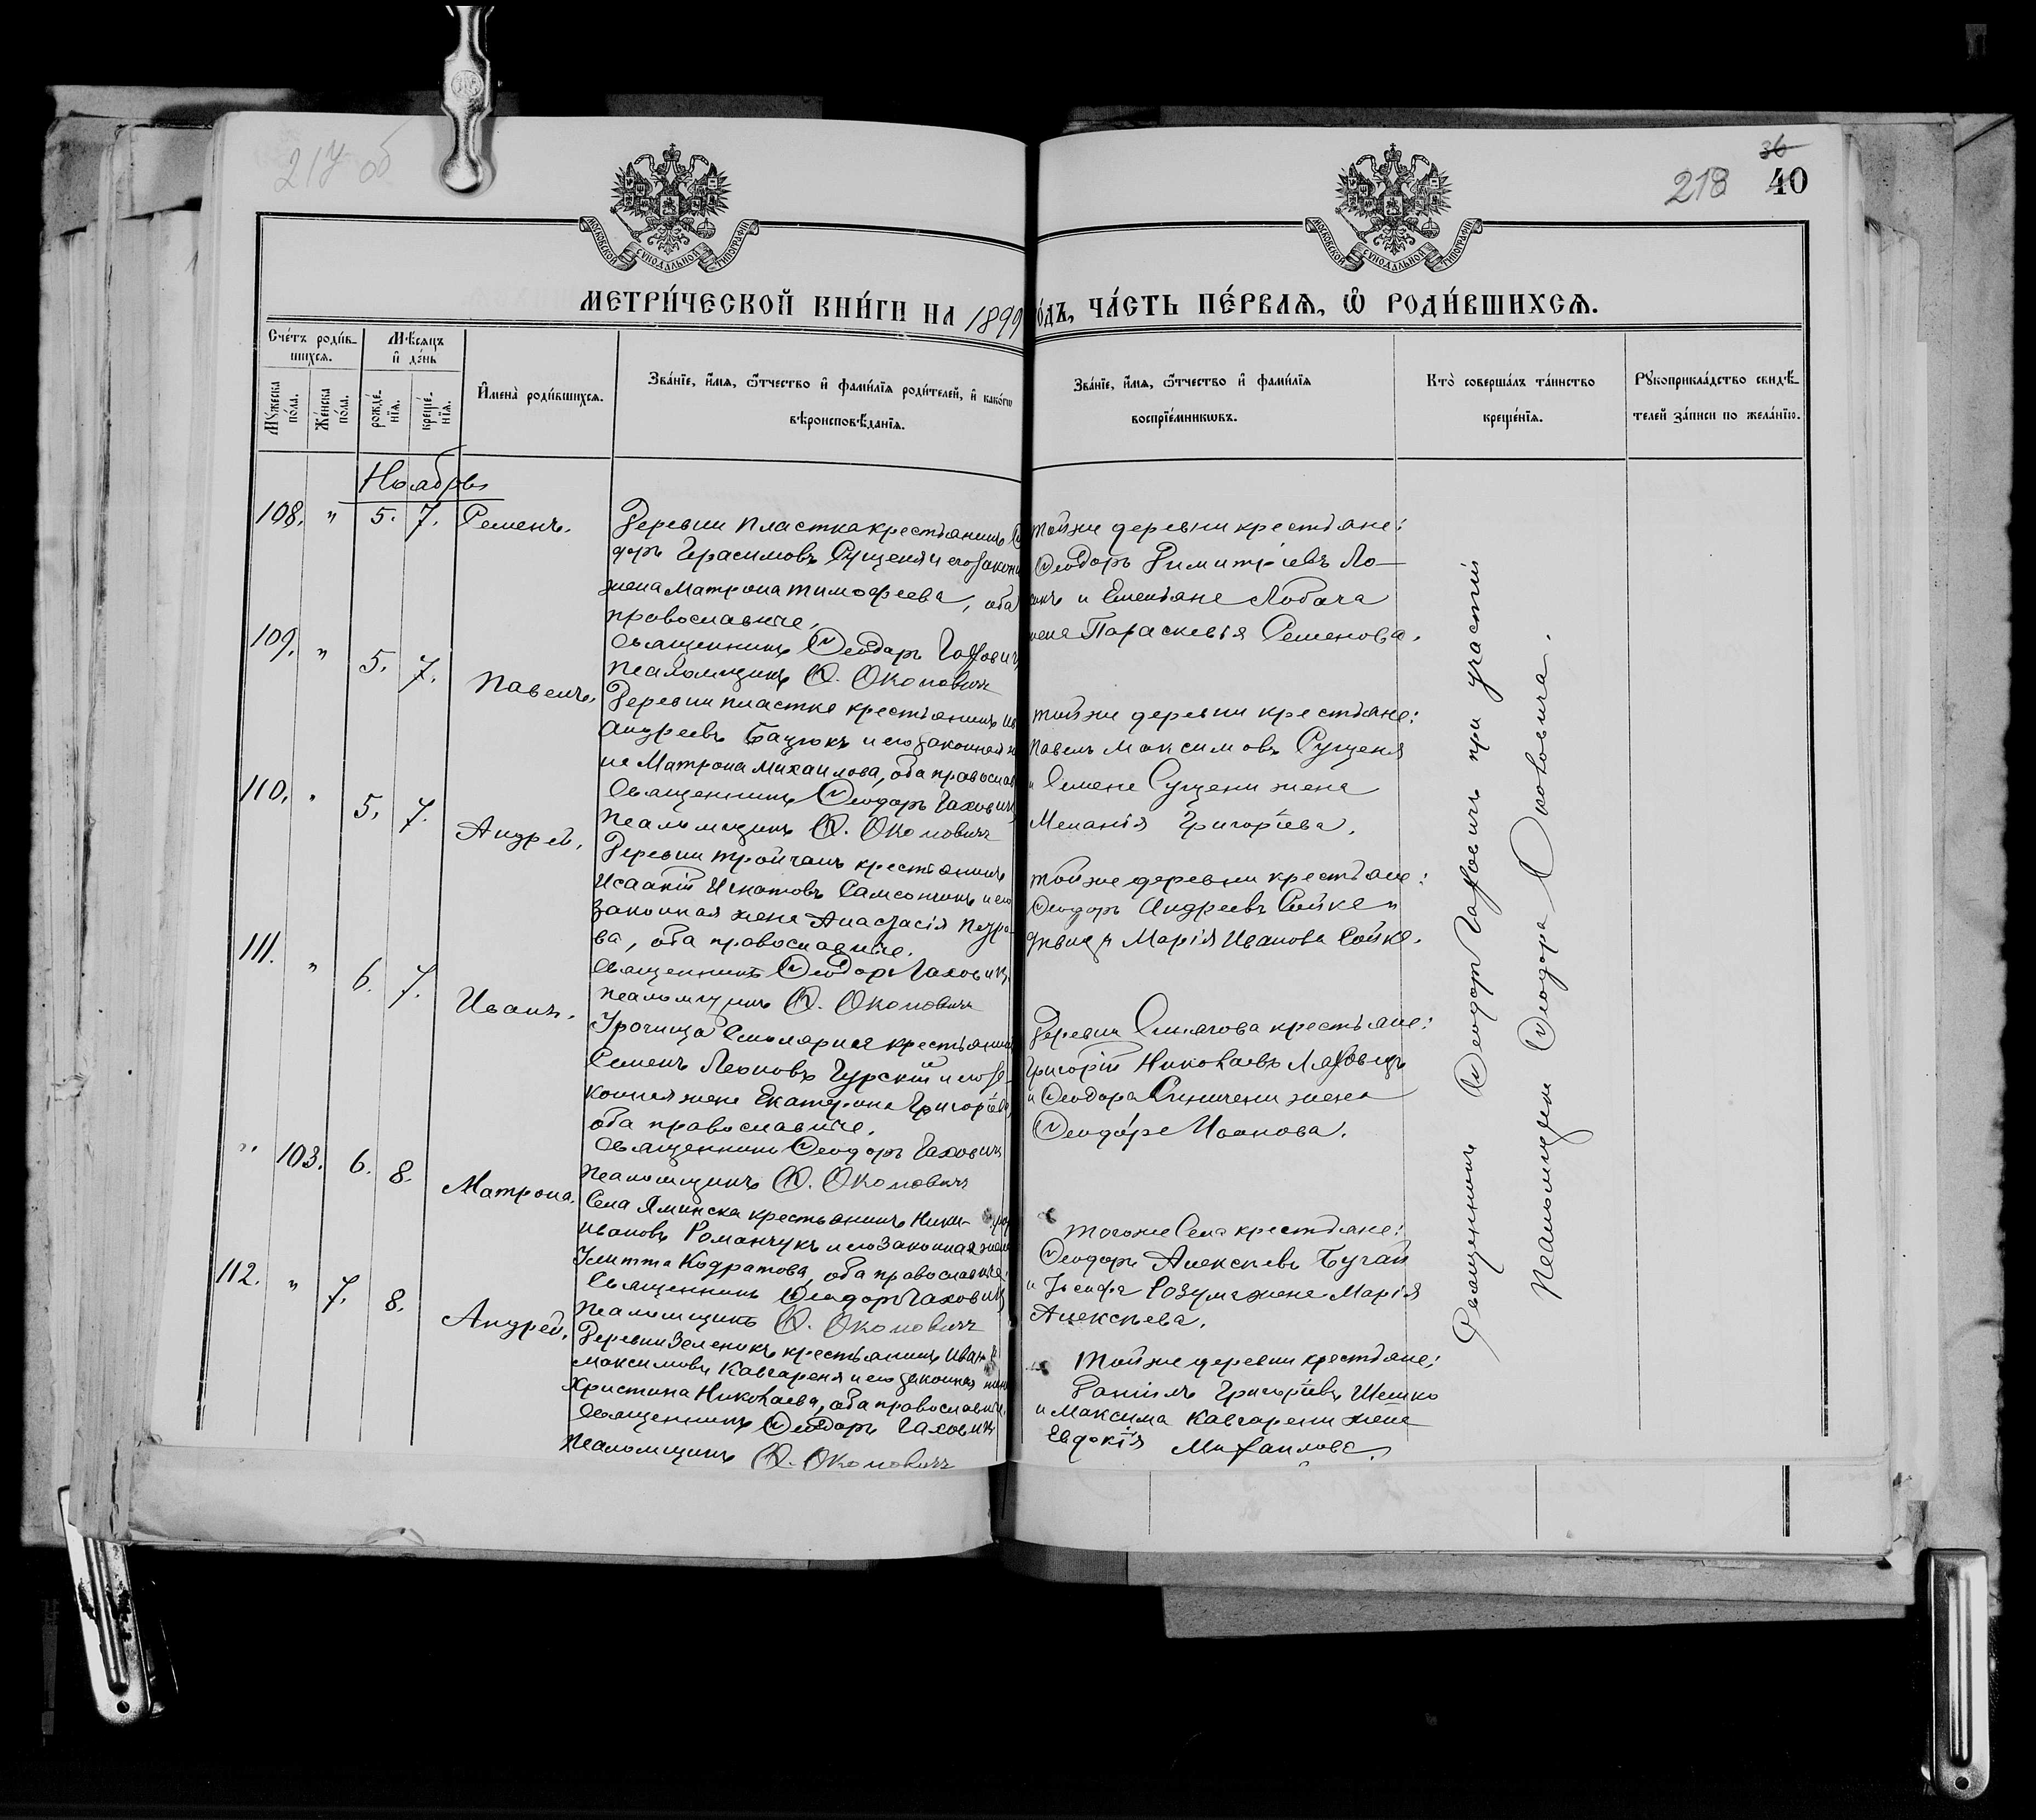 217 об
218
36
40
МОСКОВСКОЙ СѴНОДАЛЬНОЙ ТИПОГРАФІИ
МОСКОВСКОЙ СѴНОДАЛЬНОЙ ТИПОГРАФІИ
МЕТРИ́ЧЕСКОЙ КНИ́ГИ НА 1899
о́дъ, ЧА́СТЬ ПЕ́РВАѦ, Ѡ҆ РОДИ́ВШИХСѦ.
Сче́тъ роди́в-
шихсѧ.
Мꙋ́жеска по́ла.
Же́нска по́ла.
Мѣ́сяцъ
и҆ де́нь
рожде́-
нїѧ.
креще́-
нїѧ.
И҆мена̀ роди́вшихсѧ.
Зва́нїе, и҆́мѧ, ѻ҆́тчество и҆ фами́лїѧ роди́телей, и҆ како́гѡ
вѣроисповѣ́данїѧ.
Зва́нїе, и҆́мѧ, ѻ҆́тчество и҆ фами́лїѧ
воспрїе́мникѡвъ.
Кто̀ соверша́лъ та́инство
креще́нїѧ.
Рꙋкоприкла́дство свидѣ́-
телей за́писи по жела́нїю.
Ноябрь
108. " 5. 7. Семенъ.
Деревни Пластка крестьянинъ
доръ Герасимовъ Сущеня и его закон
жена Матрона Тимофеева, оба
православные.
Священникъ Ѳеодоръ Гахович
Псаломщикъ Ѳ. Околович
тойже деревни крестьяне:
Ѳеодоръ Димитріевъ Ло-
и Емельяна Лобача
жена Параскевія Семенова.
109. " 5. 7. Павелъ.
Деревни Пластка крестьянинъ Ив
Андреевъ Бацюкъ и его законная ж
на Матрона Михаилова, оба православ
Священникъ Ѳеодоръ Гахович
Псаломщикъ Ѳ. Околович
тойже деревни крестьяне:
Павелъ Максимовъ Сущеня
и Семена Сущени жена
Меланія Григоріева.
110. " 5. 7. Андрей.
Деревни Тройчанъ крестьянинъ
Исаакій Игнатовъ Самсончикъ и его
законная жена Анастасія Петро-
ва, оба православные.
Священникъ Ѳеодоръ Гахович
Псаломщикъ Ѳ. Околович
тойже деревни крестьяне:
Ѳеодоръ Андреевъ Сойка и
дѣвица Марія Иванова Сойка.
111. " 6. 7. Иванъ.
Урочища Смолярня крестьянинъ
Семенъ Леоновъ Гурскій и его за-
конная жена Екатерина Григоріева,
оба православные.
Священникъ Ѳеодоръ Гахович
Псаломщикъ Ѳ. Околович
Деревни крестьяне:
Григорій Николаевъ Ляховецъ
и Ѳеодора жена
Ѳеодора Иванова.
" 103. 6. 8. Матрона.
Села Яминска крестьянинъ Ники- фор
Ивановъ Романчукъ и его законная жена
Улитта Кодратова, оба православные.
Священникъ Ѳеодоръ Гахович
Псаломщикъ Ѳ. Околович
тогоже села крестьяне:
Ѳеодоръ Алексѣевъ Бугай
и Іосифа Розума жена Марія
Алексѣева.
112. " 7. 8. Андрей.
Деревни Зеленикъ крестьянинъ Иван
Максимовъ Кавгареня и его законная жена
Христина Николаева, оба православные.
Священникъ Ѳеодоръ Гахович
Псаломщикъ Ѳ. Околович
тойже деревни крестьяне:
Даніилъ Григоріевъ Шешко
и Максима Кавгарени жена
Евдокія Михаилова.
Священникъ Ѳеодоръ Гаховичъ при участіи
Псаломщика Ѳеодора Околовича.